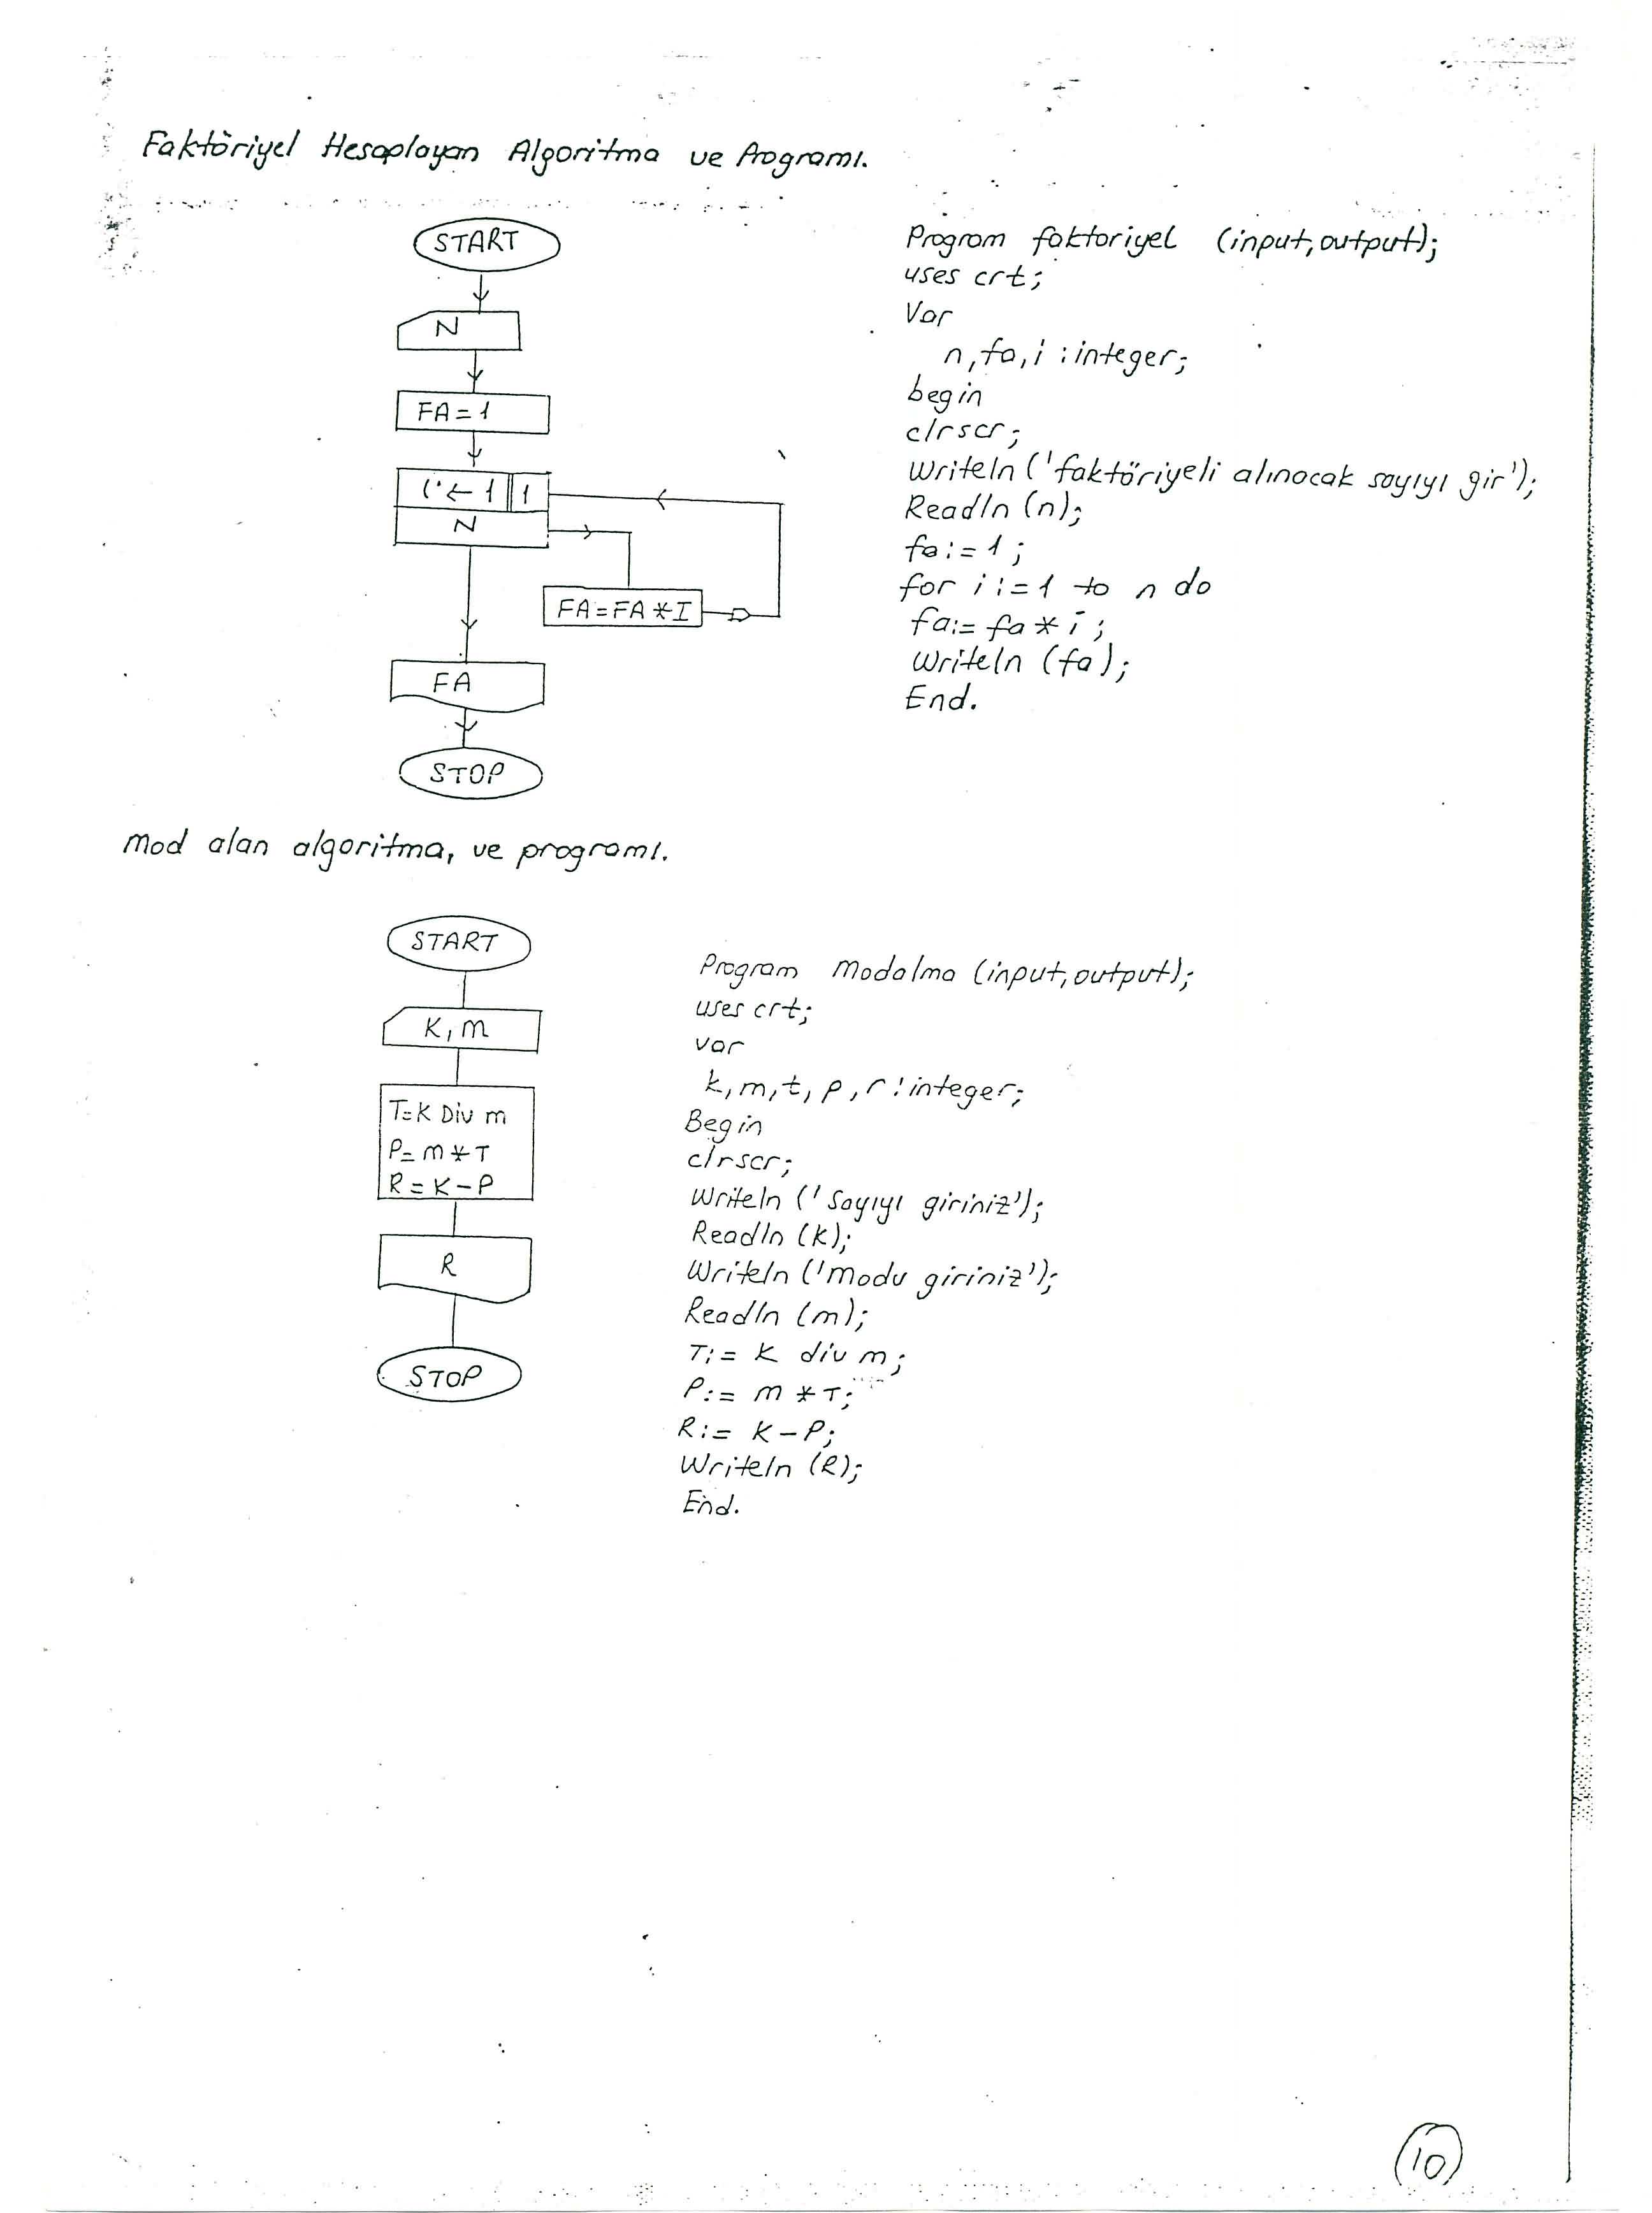 Faktöriyel Hesaplayan Algoritma ve Programı.
START
N
FA=1
i←1 1
N
FA=FA*I
FA
STOP
Program faktoriyel (input,output);
uses crt;
Var
n,fa,i:integer;
begin
clrscr;
Writeln('faktöriyeli alınacak sayıyı gir');
Readln(n);
fa:=1;
for i:=1 to n do
fa:=fa*i;
Writeln(fa);
End.
Mod alan algoritma, ve programı.
START
K,m
T=K Div m
P=m*T
R=K-P
R
STOP
Program Modalma (input,output);
uses crt;
var
k,m,t,p,r:integer;
Begin
clrscr;
Writeln('Sayıyı giriniz');
Readln(k);
Writeln('modu giriniz');
Readln(m);
T:= K div m;
P:= m*T;
R:= K-P;
Writeln(R);
End.
10